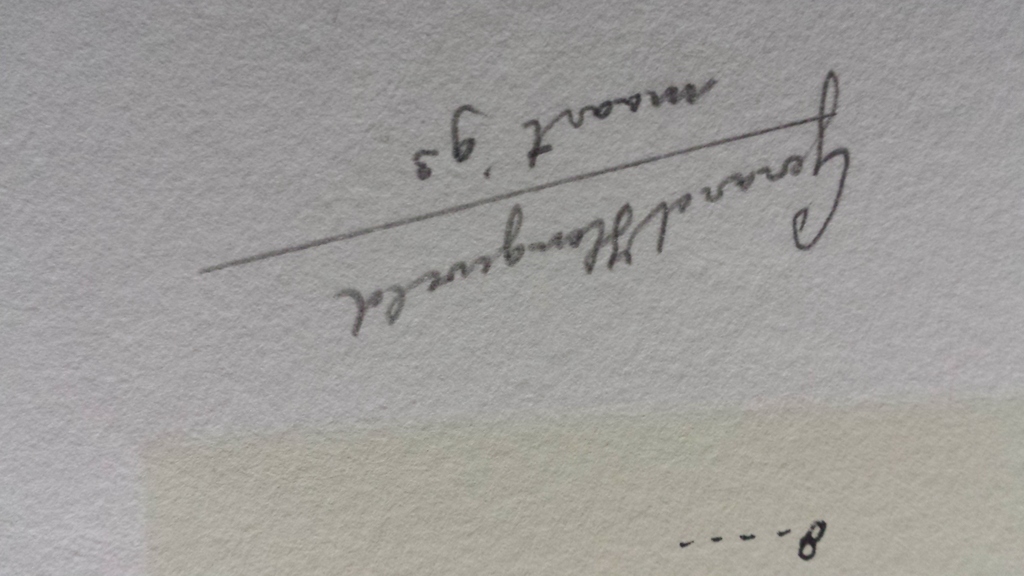 8----
Gerard Hongeveld
maart '93